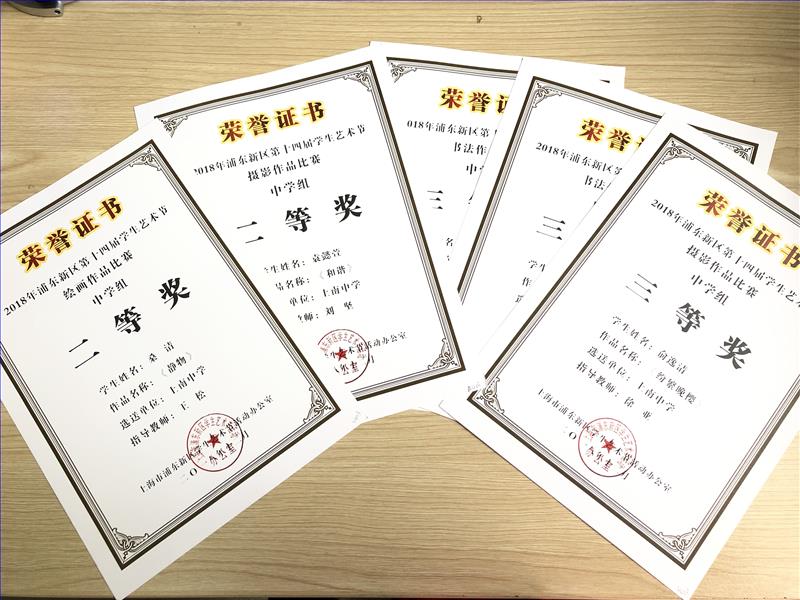 荣誉证书
2018年浦东新区第十四届学生艺术节
绘画作品比赛
中学组
二等奖
学生姓名：桑洁
作品名称：《静物》
选送单位：上南中学
指导教师：王松
上海市浦东新区学生艺术节活动办公室
荣誉证书
2018年浦东新区第十四届学生艺术节
摄影作品比赛
中学组
二等奖
生姓名：袁懿萱
品名称：《和谐》
单位：上南中学
师：刘坚
荣誉证
018年浦东新区第
书法作
中学
三
荣誉证
2018年浦东新区第十四届
书法作
中
三
荣誉证书
2018年浦东新区第十四届学生艺术节
摄影作品比赛
中学组
三等奖
学生姓名：俞逸洁
作品名称：
选送单位：上南中学
指导教师：徐亚
学生艺术节活动办公室